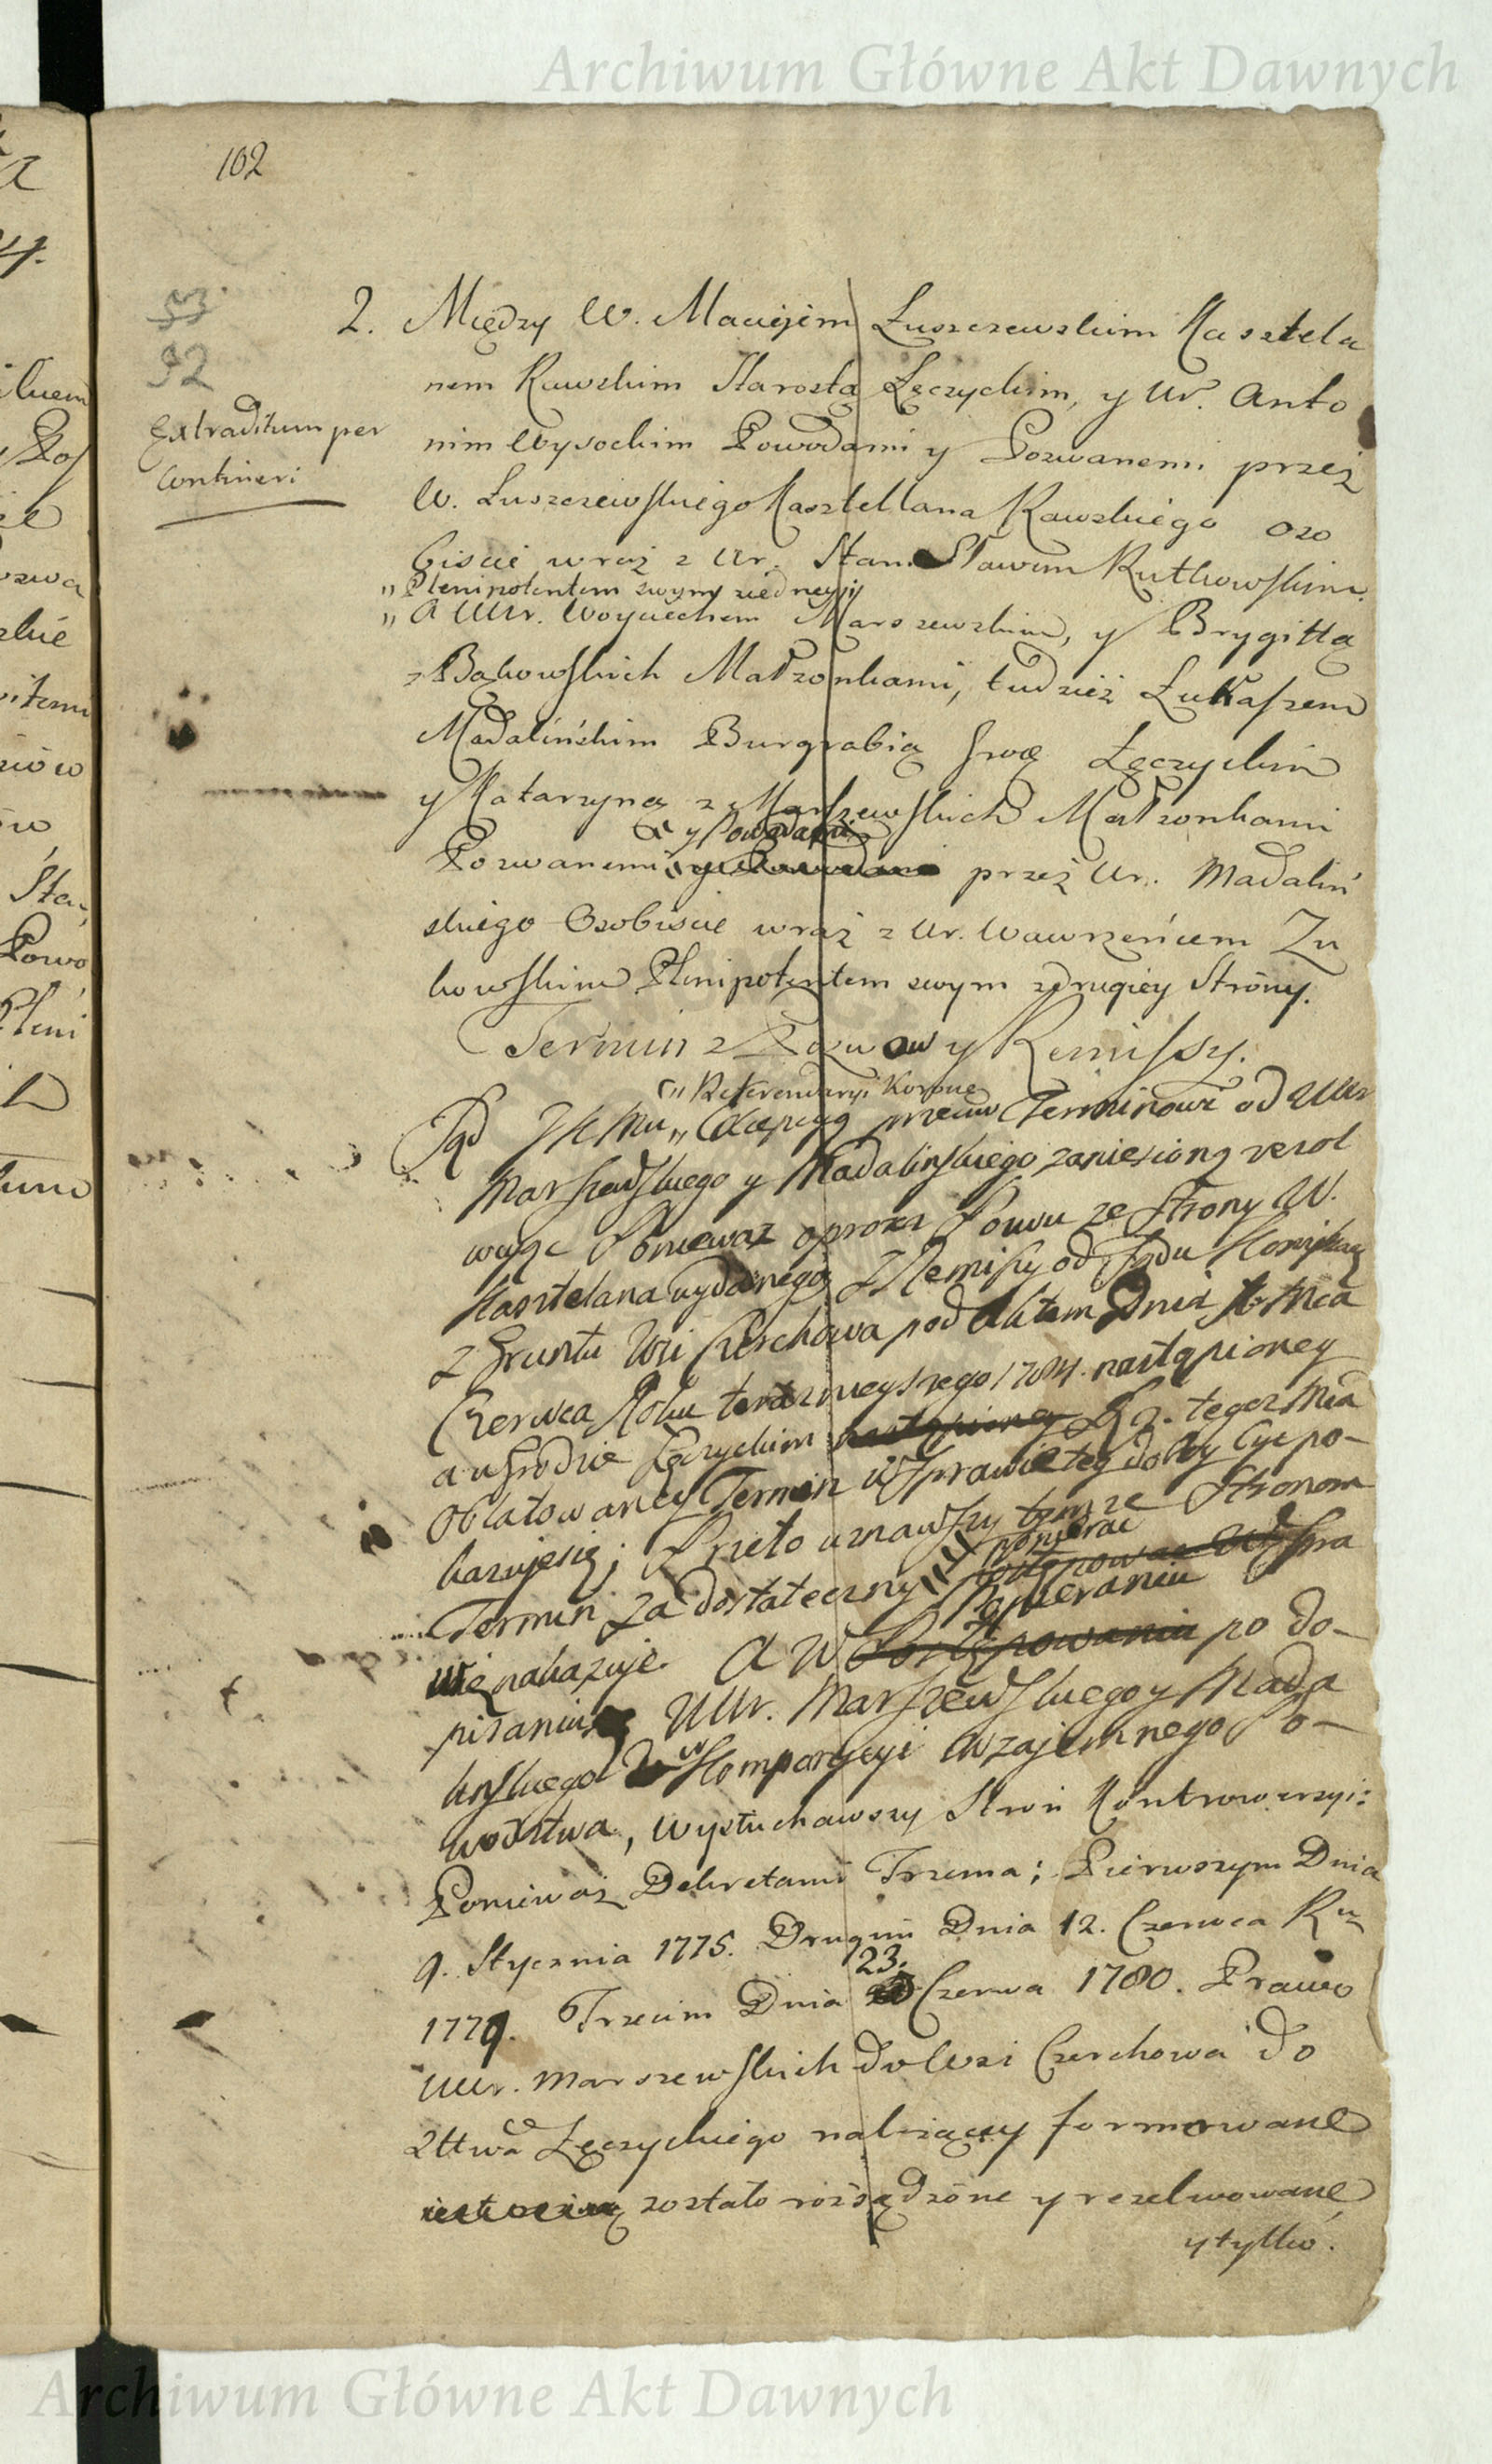 Archiwum Główne Akt Dawnych
102
53
92
Extraditum per
Contineri
2. Między W. Maciejem Łuszczewskim Kasztela
nem Rawskim Starostą Łęczyckim, y Ur. Anto
nim Wysockim Powodami y Pozwanemi przez
W. Łuszczewskiego Kasztellana Rawskiego oso
biscie wraz z Ur. Stanisławem Rutkowskim
„Plenipotentem swym z iedney
„A UUr. Woyciechem Marszewskim, y Brygittą
z Bąkowskich Małżonkami, tudzież Łukaszem
Madalińskim Burgrabią Łęczyckim
y Katarzyną z Marszewskich Małżonkami
y Powodami
Pozwanemi y Powodami przez Ur. Madaliń
skiego Osobiscie wraz z Ur. Wawrzeńcem Zu
kowskim Plenipotentem swym z drugiey Strony.
Termin z Pozwow y Remissy.
„Referendaryi Koronney
Sąd JKMci „Akcepcyą przeciw Terminowi od UUr
Marszewskiego y Madalinskiego zaniesioną rezol
wuiąc Ponieważ oprocz Pozwu ze Strony W.
Kasztelana wydanego, z Remissy od Sądu
z Gruntu Wsi Czerchowa pod Aktem Dnia Mca
Czerwca Roku teraznieyszego 1784. nastąpioney
a w Grodzie Łęczyckim nastąpioney tegoz Mca
Oblatowaney Termin w Sprawie tey po-
kazuiesię; Przeto uznawszy tenze Stronom
Termin za dostateczny popierac postępowac w Spra
wie nakazuie. A w Popieraniu Postępowania po do-
pisaniu UUr. Marszewskiego y Mada
linskiego w Komparycyi wzajemnego Po-
wodztwa, wysłuchawszy Stron Kontrowersyi:
Ponieważ Dekretami Trzema; Pierwszym Dnia
9. Stycznia 1775. Drugim Dnia 12. Czerwca Rku
23.
1779. Trzecim Dnia Czerwca 1780. Prawo
UUr. Marszewskich do Wsi Czerchowa do
Sttwa Łęczyckiego należący formowane
zostało rozsądzone y rezolwowane
y tylko.
Archiwum Główne Akt Dawnych